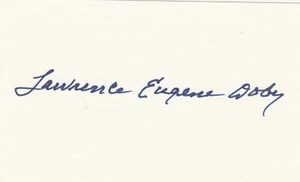 Lawrence Eugene Doby